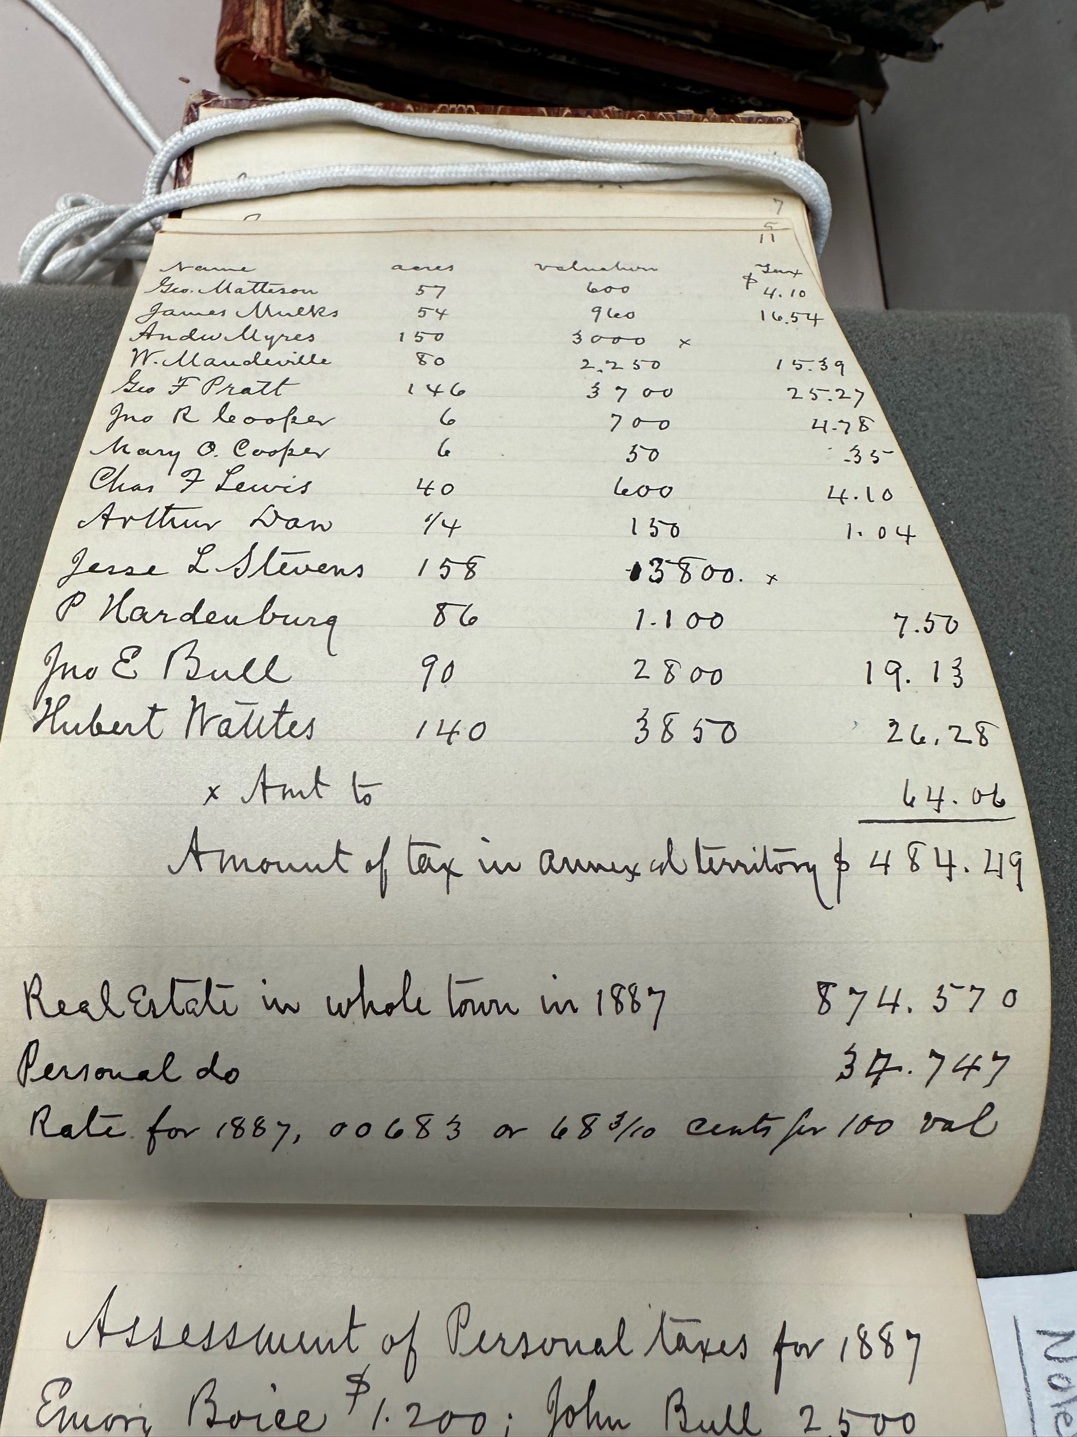 7
5
11
Name acres valuation Tax
Geo. Matteson 57 600 $4.10
James Mulks 54 960 16.54
Andw Myres 150 3000 x
W. Mandeville 80 2.250 15.39
Geo F Pratt 146 3700 25.27
Jno R Cooper 6 700 4.78
Mary O. Cooper 6 50 .35
Chas F Lewis 40 600 4.10
Arthur Dan 1/4 150 1.04
Jesse L Stevens 158 3800. x
P Hardenburg 86 1.100 7.50
Jno E Bull 90 2800 19.13
Hubert Wattles 140 3850 26.28
x Amt to 64.06
Amount of tax in annexed territory $ 484.49
Real Estate in whole town in 1887 874.570
Personal do 37.747
Rate for 1887, 00683 or 68 3/10 cents for 100 val
Assessment of Personal taxes for 1887
Emory Boice $1.200; John Bull 2,500
Note